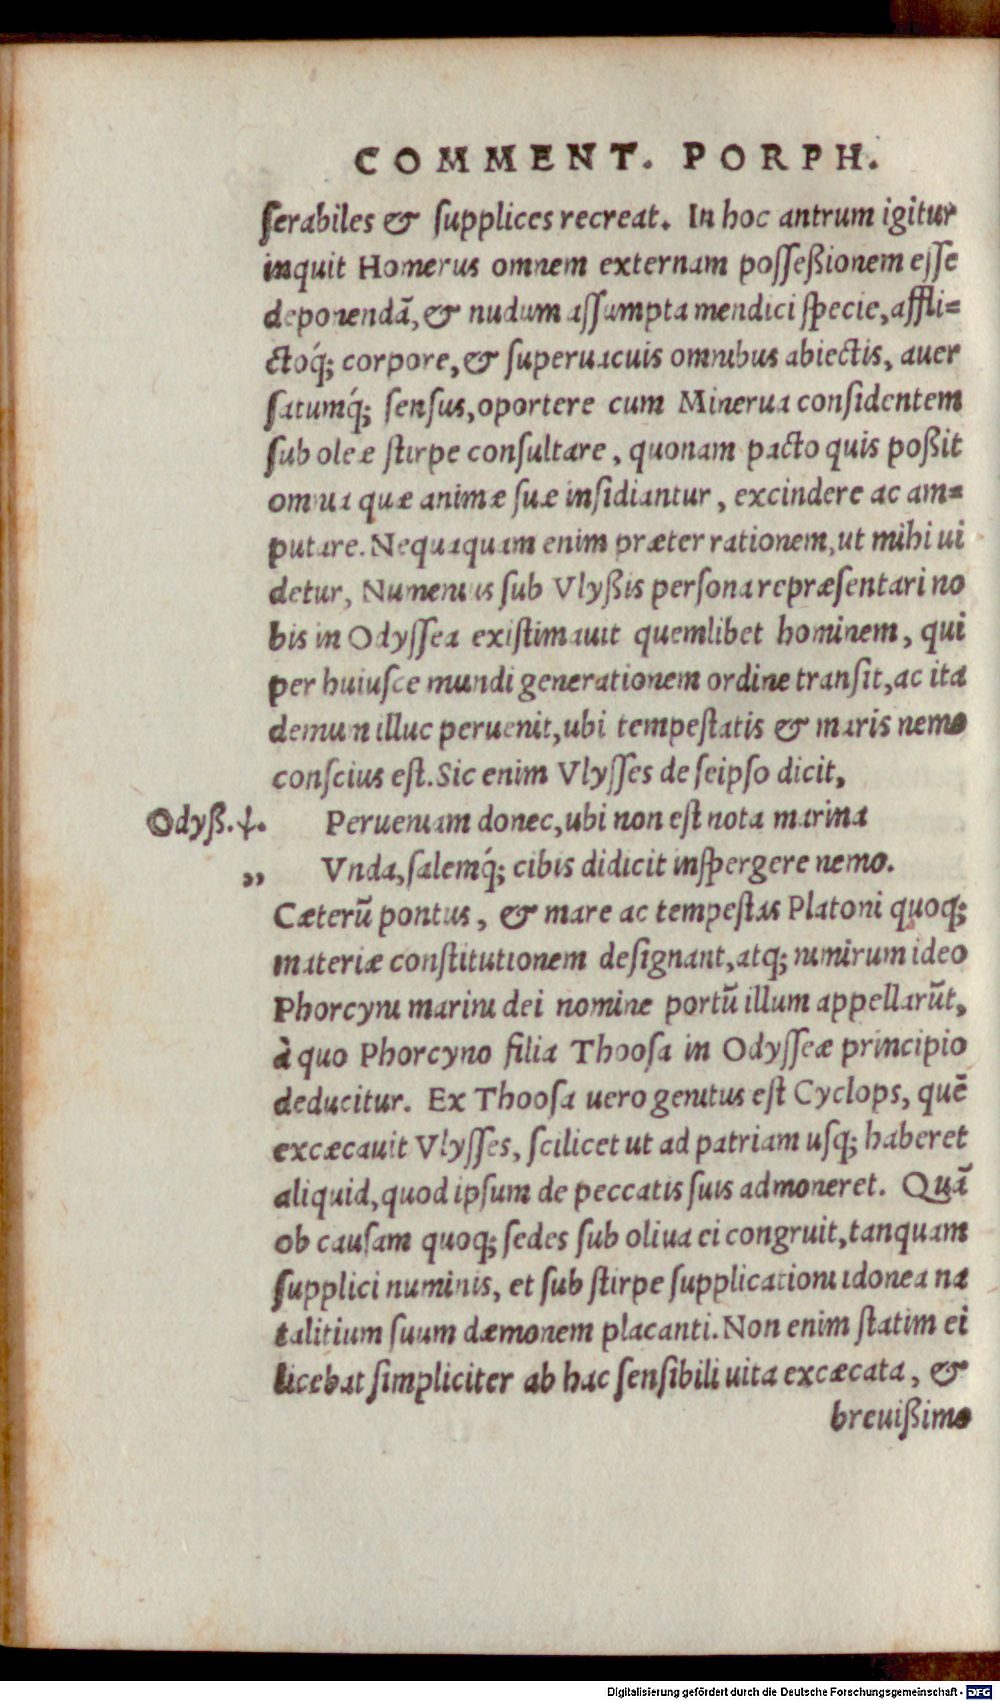 COMMENT. PORPH.
ſerabiles & ſupplices recreat. In hoc antrum igitur
inquit Homerus omnem externam poſſeßionem eſſe
deponendā, & nudum aſſumpta mendici ſpecie, affli=
ctoq́; corpore, & ſuperuacuis omnibus abiectis, auer
ſatumq́; ſenſus, oportere cum Minerua conſidentem
ſub oleæ ſtirpe conſultare, quonam pacto quis poßit
omnia quæ animæ ſuæ inſidiantur, excindere ac am=
putare. Nequaquam enim præter rationem, ut mihi ui
detur, Numenius ſub Vlyßis perſona repræſentari no
bis in Odyſſea exiſtimauit quemlibet hominem, qui
per huiuſce mundi generationem ordine tranſit, ac ita
demum illuc peruenit, ubi tempeſtatis & maris nemo
conſcius eſt. Sic enim Vlyſſes de ſeipſo dicit,
Odyß. ψ. Perueniam donec, ubi non eſt nota marina
„ Vnda, ſalemq́; cibis didicit inſpergere nemo.
Cæterū pontus, & mare ac tempeſtas Platoni quoq;
materiæ conſtitutionem deſignant, atq; nimirum ideo
Phorcyni marini dei nomine portū illum appellarūt,
à quo Phorcyno filia Thooſa in Odyſſeæ principio
deducitur. Ex Thooſa uero genitus eſt Cyclops, quē
excæcauit Vlyſſes, ſcilicet ut ad patriam uſq; haberet
aliquid, quod ipſum de peccatis ſuis admoneret. Quā
ob cauſam quoq; ſedes ſub oliua ei congruit, tanquam
ſupplici numinis, et ſub ſtirpe ſupplicationi idonea na
talitium ſuum dæmonem placanti. Non enim ſtatim ei
licebat ſimpliciter ab hac ſenſibili uita excæcata, &
breuißimo
Digitalisierung gefördert durch die Deutsche Forschungsgemeinschaft - DFG